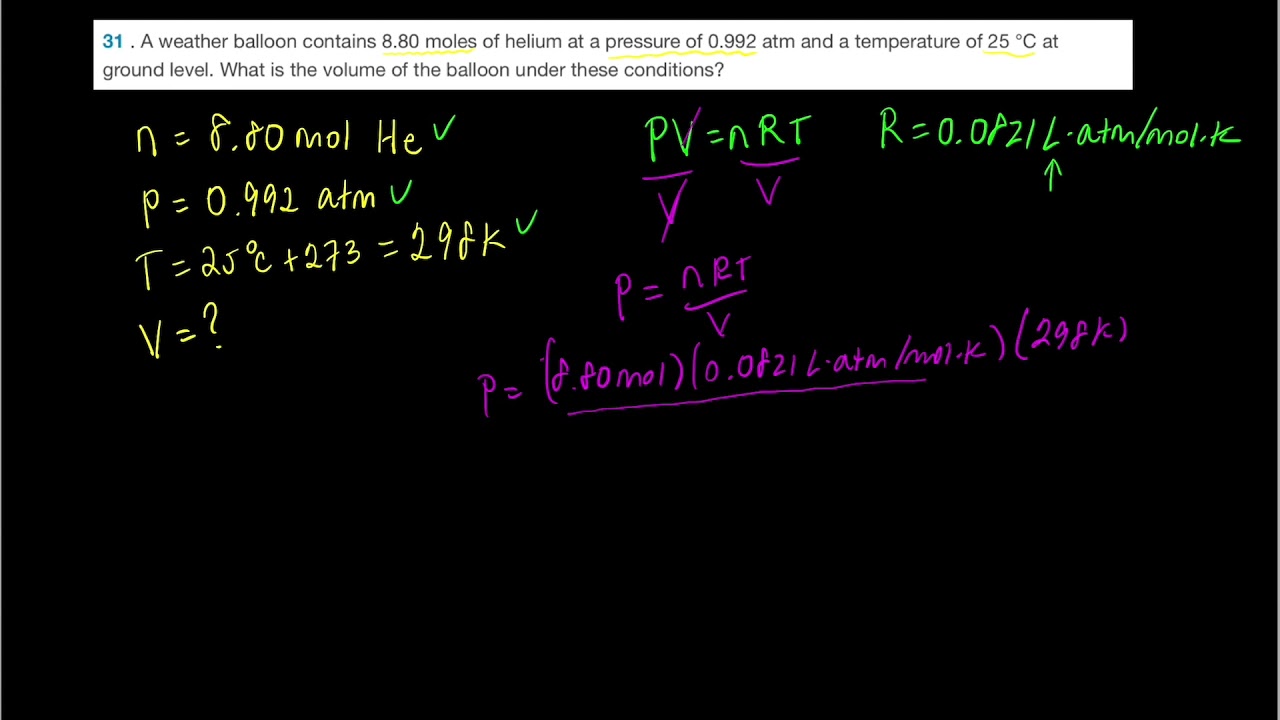 31 . A weather balloon contains 8.80 moles of helium at a pressure of 0.992 atm and a temperature of 25 °C at
ground level. What is the volume of the balloon under these conditions?
n = 8.80 mol He ✓
P = 0.992 atm ✓
T = 25°C + 273 = 298K ✓
V = ?
PV = nRT
V V
R = 0.0821 L·atm/mol·K
↑
P = nRT
V
P = (8.80mol)(0.0821 L·atm/mol·K)(298K)